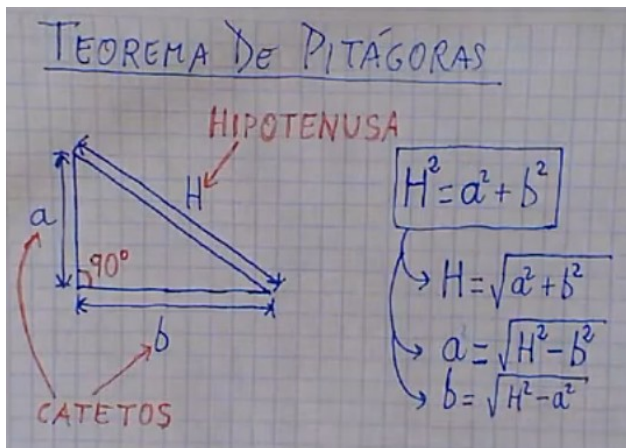 TEOREMA DE PITÁGORAS
HIPOTENUSA
H
a
90°
b
CATETOS
H² = a² + b²
H = √a² + b²
a = √H² - b²
b = √H² - a²